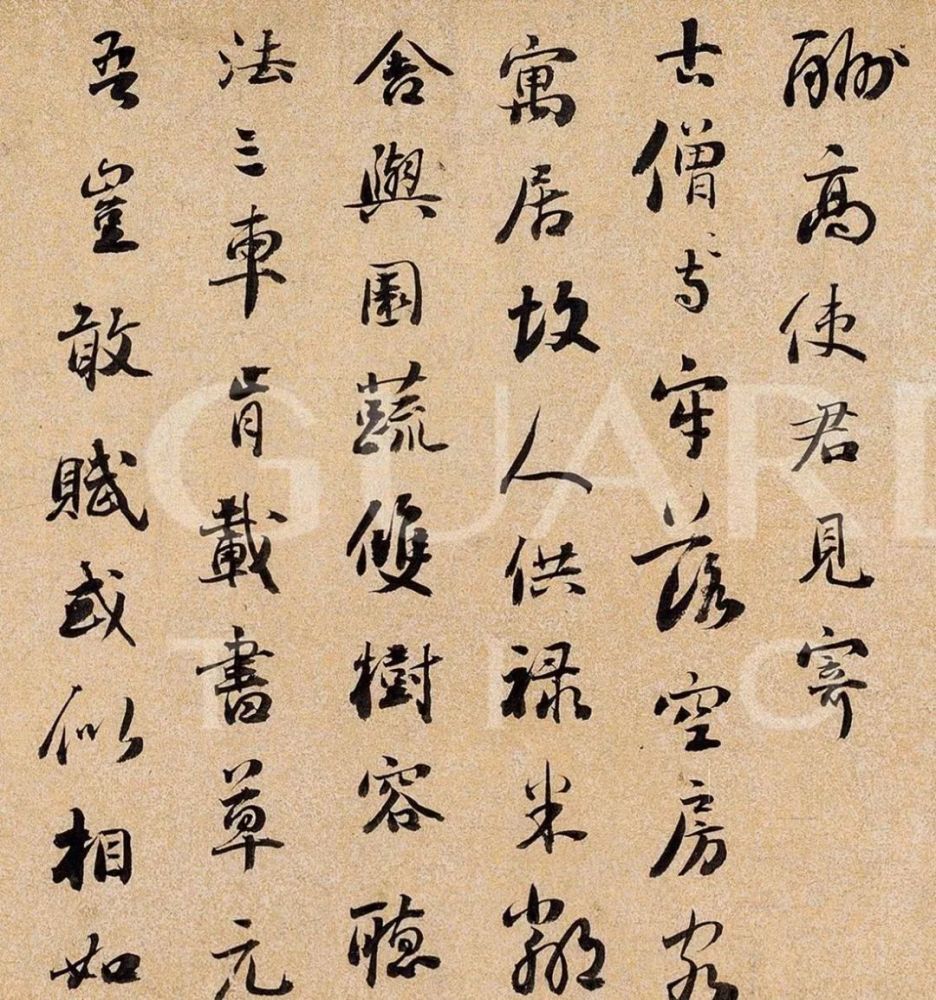 酬高使君見寄
古僧寺牢落空房客
寓居故人供禄米鄰
舍與園蔬雙樹容聽
法三車肯載書草元
吾豈敢賦或似相如